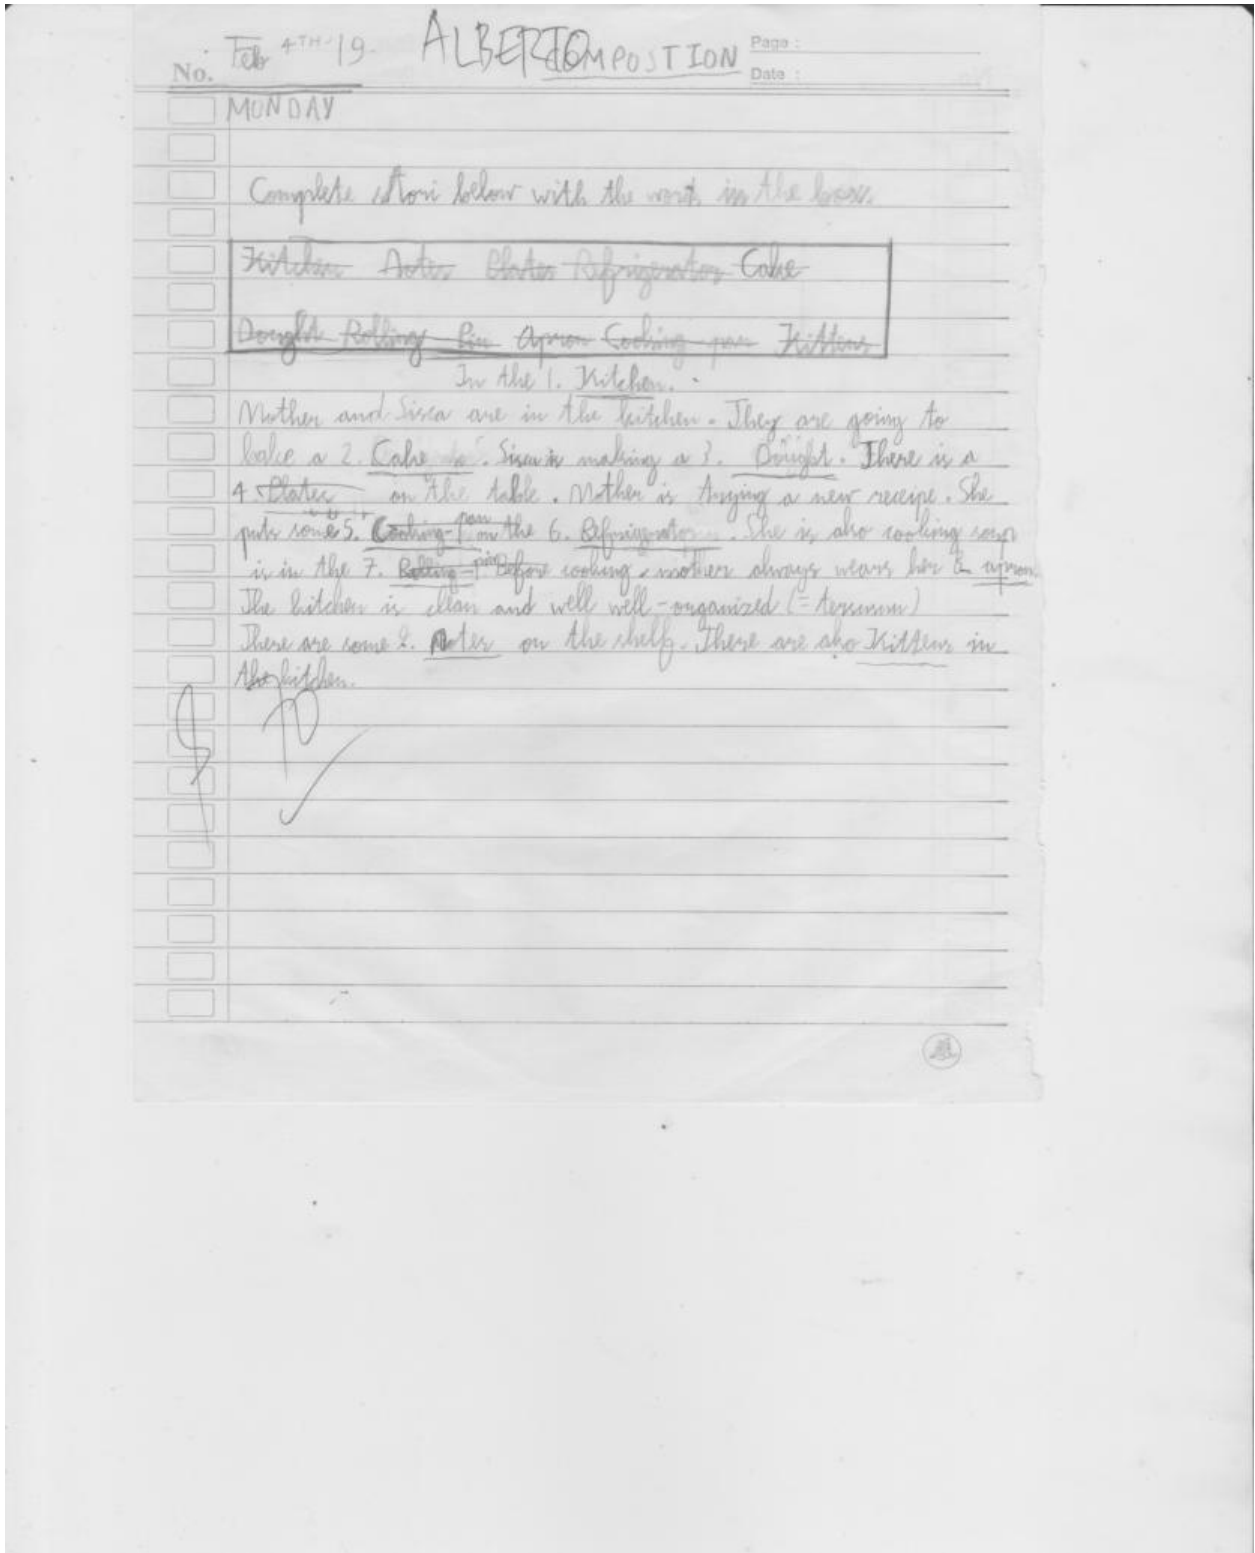 No. Feb 4TH-19. ALBERTO COMPOSTION Page :
Date :
MUNDAY
Complete stori below with the words in the box.
Kitchen Notes Plates Refrigerator Cake
Dought Rolling Pin Apron Cooking pan Kittens
In the 1. Kitchen.
Mother and Sisca are in the kitchen. They are going to
bake a 2. Cake. Sisca is making a 3. Dought. There is a
4. Plates on the table. Mother is trying a new receipe. She
puts some 5. Cooking-pan on the 6. Refrigerator. She is also cooking soup
is in the 7. Rolling-pin Before cooking, mother always wears her 8 apron.
The kitchen is clean and well well-organized (= tersusun)
There are some 9. Notes on the shelf. There are also Kittens in
the kitchen.